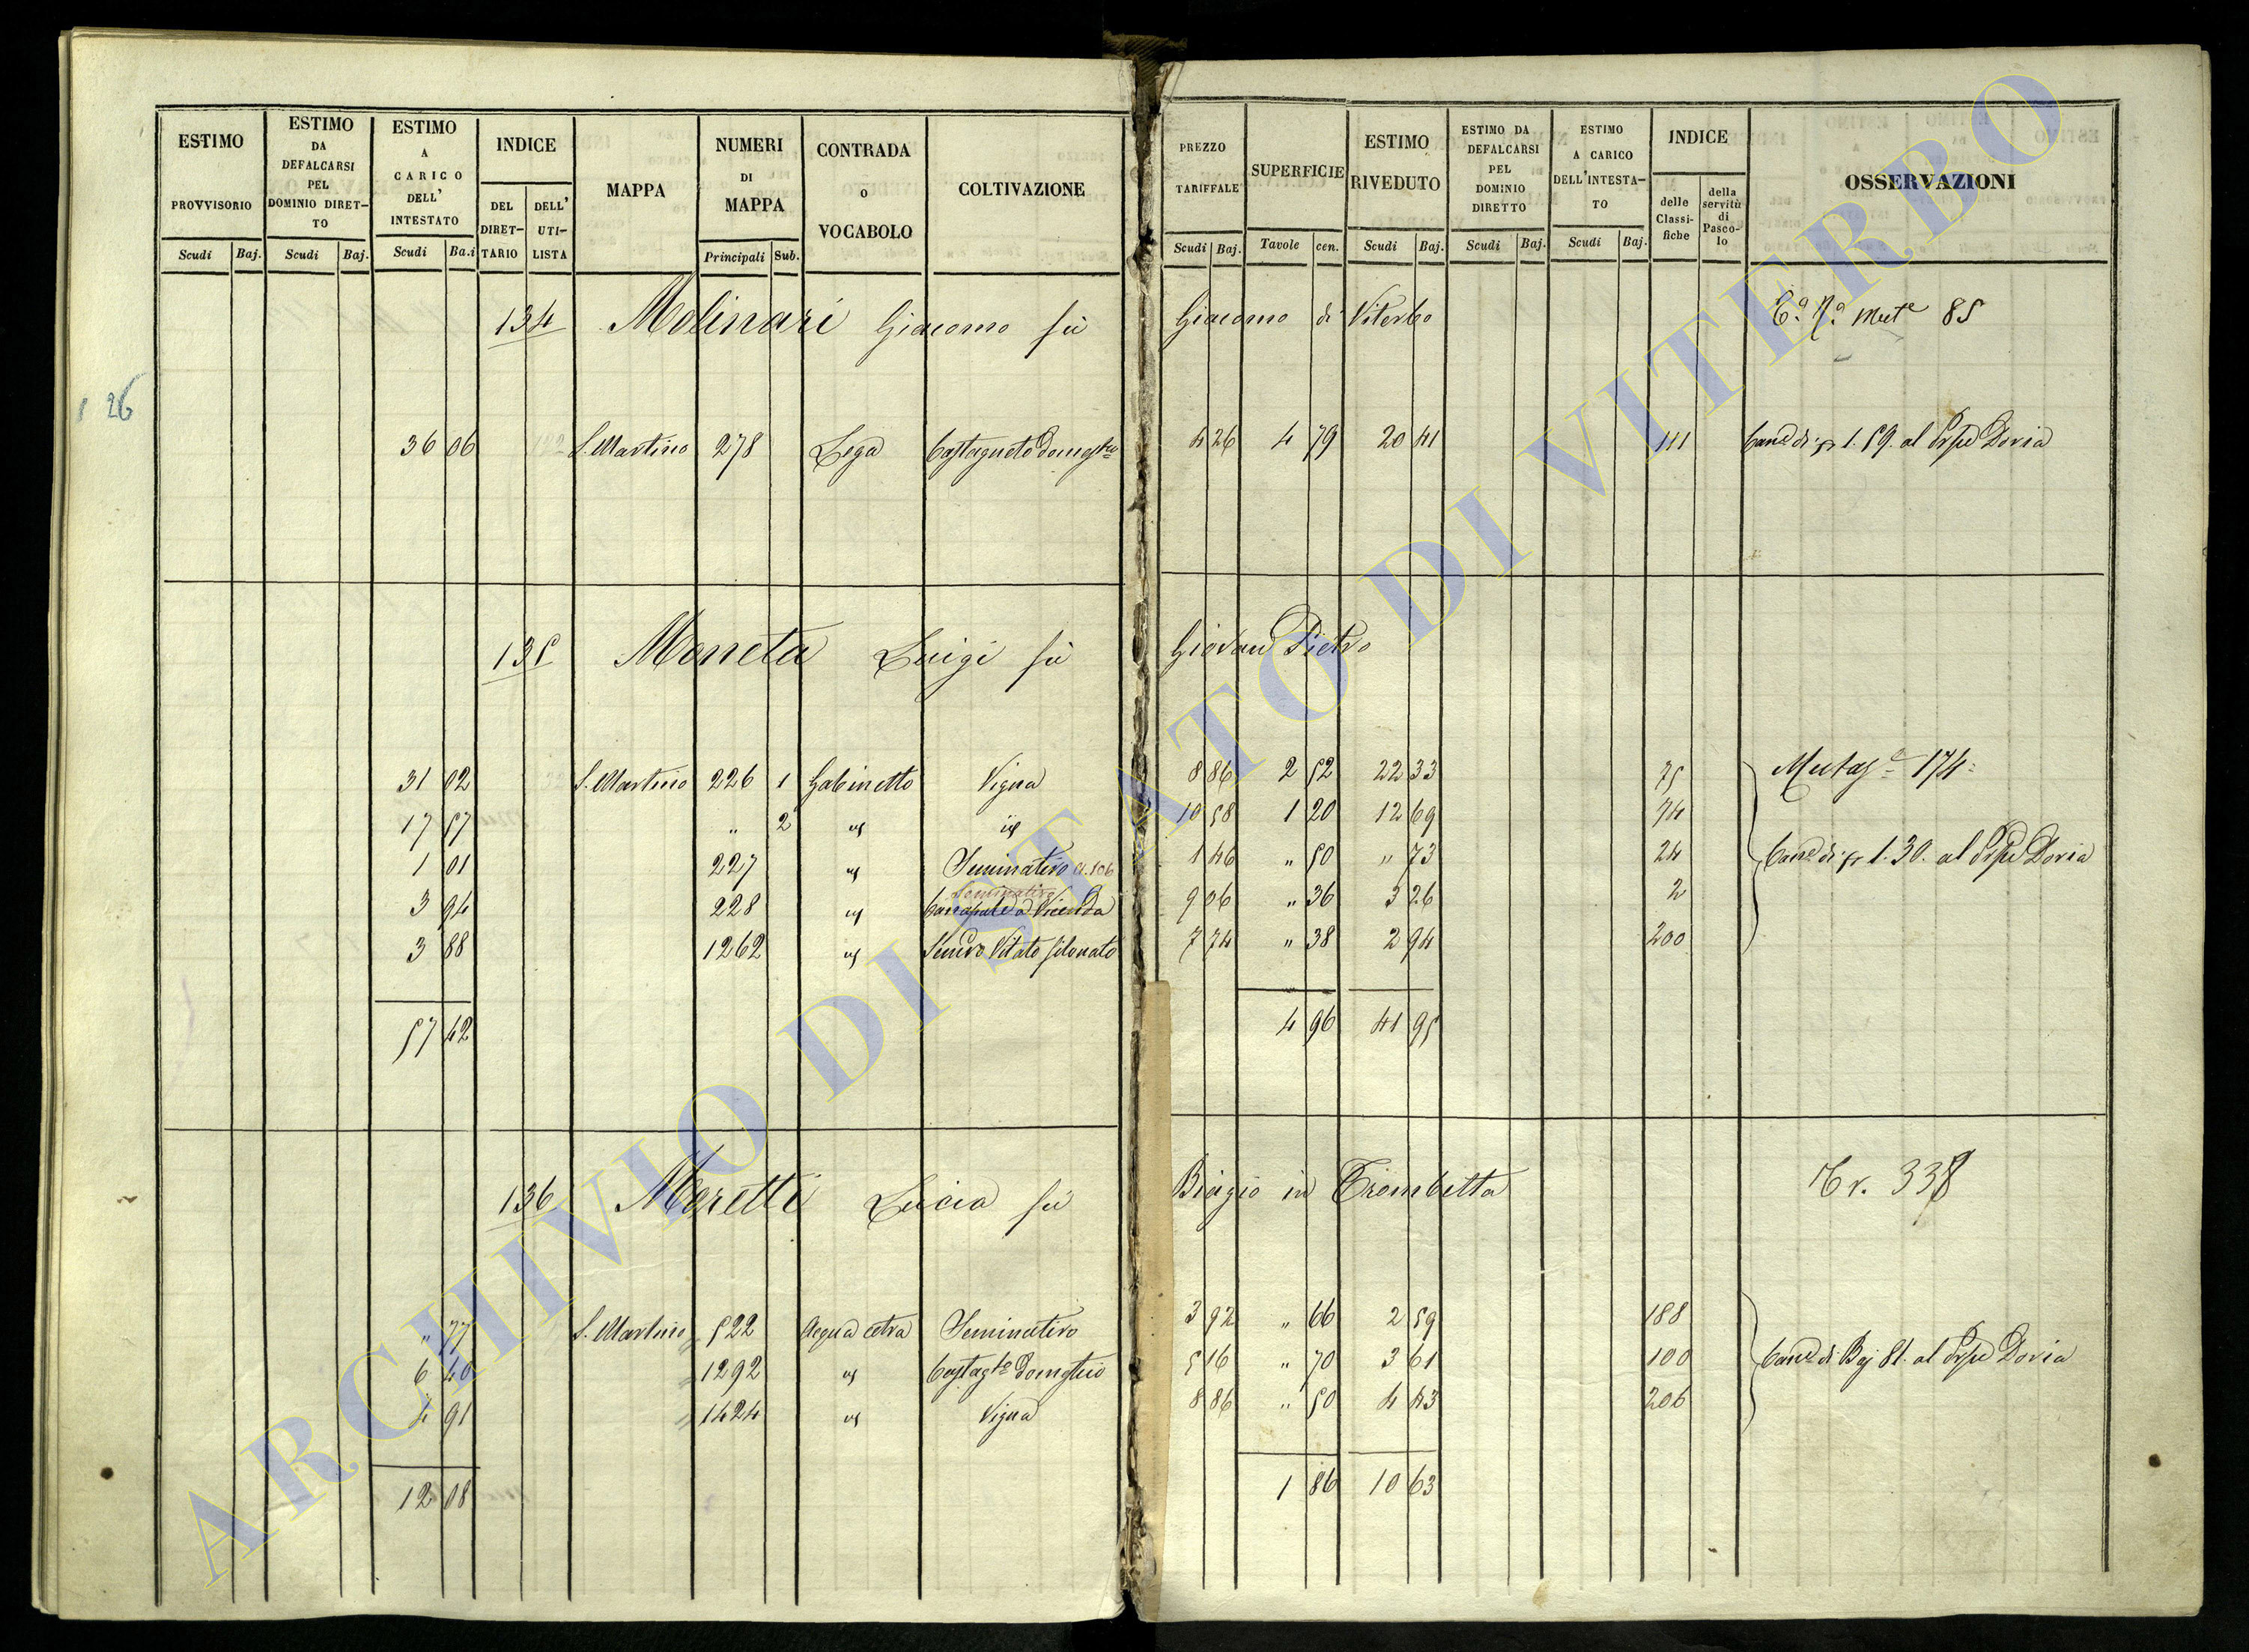 ESTIMO PROVVISORIO Scudi Baj.
ESTIMO DA DEFALCARSI PEL DOMINIO DIRET- TO Scudi Baj.
ESTIMO A CARICO DELL' INTESTATO Scudi Ba.i
INDICE DEL DIRET- TARIO DELL' UTI- LISTA
MAPPA
NUMERI DI MAPPA Principali Sub.
CONTRADA o VOCABOLO
COLTIVAZIONE
PREZZO TARIFFALE Scudi Baj.
SUPERFICIE Tavole cen.
ESTIMO RIVEDUTO Scudi Baj.
ESTIMO DA DEFALCARSI PEL DOMINIO DIRETTO Scudi Baj.
ESTIMO A CARICO DELL'INTESTA- TO Scudi Baj.
INDICE delle Classi- fiche della servitù di Pasco- lo
OSSERVAZIONI
134 Molinari Giacomo fù Giacomo di Viterbo 85
26
36 06 S. Martino 278 Lega Castagneto Domestco 4 26 4 79 20 41 111 Cane di 1.59. al Prpe Doria
135 Moneta Luigi fù Giovan Pietro
Mutaz 174
31 02 S. Martino 226 1 Gabinetto Vigna 8 86 2 52 22 33 75
17 57 " 2 id id 10 58 1 20 12 69 74
1 01 227 id Seminativo cl. 106 1 46 " 50 " 73 24 Cane di 1.30. al Prpe Doria
Seminativo
3 94 228 id Canapule a Vicenda 9 06 " 36 3 26 2
3 88 1262 id Semvo Vitato filonato 7 74 " 38 2 94 200
57 42 4 96 41 95
136 Moretti Lucia fù Biagio in Trombetta Tr. 338
" 77 S. Martino 522 Acqua cetra Seminativo 3 92 " 66 2 59 188
6 40 1292 id Castagto Domestico 5 16 " 70 3 61 100 Cane di Baj 81. al Prpe Doria
4 91 1424 id Vigna 8 86 " 50 4 43 206
12 08 1 86 10 63
ARCHIVIO DI STATO DI VITERBO